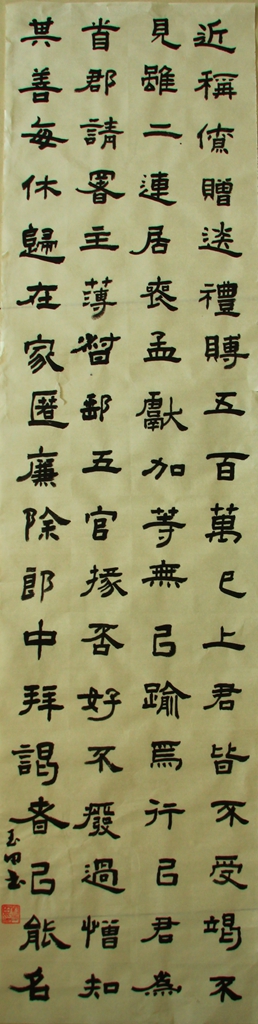 近稱僚贈送禮賻五百萬已上君皆不受竭不
見雖二連居喪孟獻加等無以踰焉行已君為
首郡請署主薄督郵五官掾否好不廢過憎知
其善每休歸在家匿廉除郎中拜謁者以能名